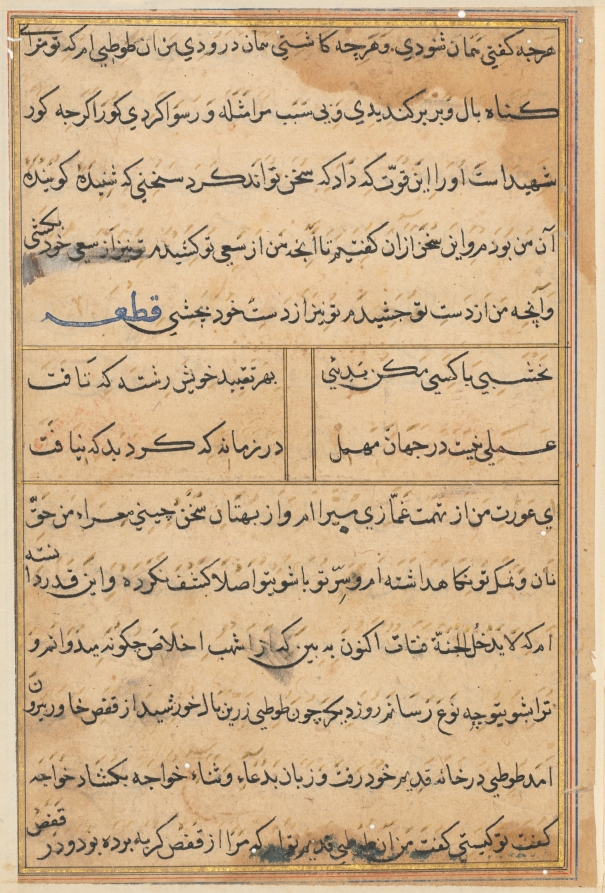 هرچه کفتی همان شنودی و هرچه کاشتی همان درودی من ان طوطیی ام که تو مرا بی
کناه بال و پر برکندیدی و بی سبب مرا مثله و رسوا کردی کور اکر چه کور
شهید است او را این قوت که داد که سخن تواند کرد سخنی که شنیده کوینده
آن من بودم و این سخن از ان کفتیم تا آنچه من از سعی تو کشیدم تو نیز از سعی خود بکشی
و آنچه من از دست تو چشیدم تو نیز از دست خود بچشی قطعه
نخشبی با کسی مکن بدیی
بهر تقیید خویش رشته که تافت
عملی نیت در جهان مهمل
در زمانه که کرد بد که نیافت
ای عورت من از تهمت غمازی مبرا ام و از بهتان سخن چینی معرا من حق
نان و نمک تو نکاه داشته ام و سر تو با شوی تو اصلا کشف نکرده و این قدر دانسته
ام که لا یدخل الجنة قتات اکنون به بین که اشهب اخلاص چکونه میدوانم و
ترا بشوی تو چه نوع رسانم روز دیکر چون طوطی زرین بال خورشید از قفص خاور بیرون
امد طوطی در خانه قدیم خود رفت و زبان بدعاء و ثناء خواجه بکشاد خواجه
کفت تو کیستی کفت من آن طوطی قدیم توام که مرا از قفص کربه برده بود و در قفص